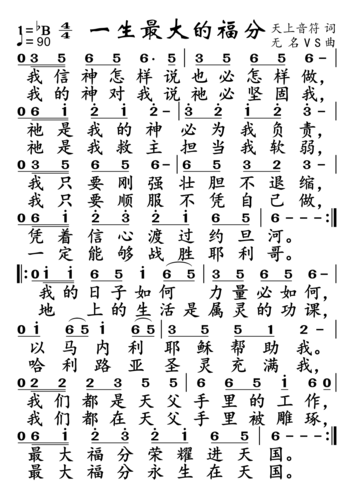 1=♭B 4/4 一生最大的福分 天上音符 词
♩=90 无名VS曲
0 3 5 5 6· 5 3 5 5 6 –
我信神怎样说也必怎样做,
我的神对我说祂必坚固我,
0 6 i 2 i 2 – 3 2 i 2 3 –
祂是我的神必为我负责,
祂是我救主担当我软弱,
0 3 5 6 5 6 – 3 5 5 6 –
我只要刚强壮胆不退缩,
我只要顺服不凭自己做,
0 6 i 2 3 2 i 2 6 i –
凭着信心渡过约旦河。
一定能够战胜耶利哥。
0 i i 6 5 i 6 5 6 5 5 6 –
我的日子如何 力量必如何,
地上的生活是属灵的功课,
0 i 6 5 6 5 i 3 5 5 2 –
以马内利耶稣帮助我。
哈利路亚圣灵充满我,
0 2 2 2 3 5 i 6 5 i 6 0
我们都是天父手里的工作,
我们都在天父手里被雕琢,
0 6 i 2 3 2 i 2 6 i –
最大福分荣耀进天国。
最大福分永生在天国。